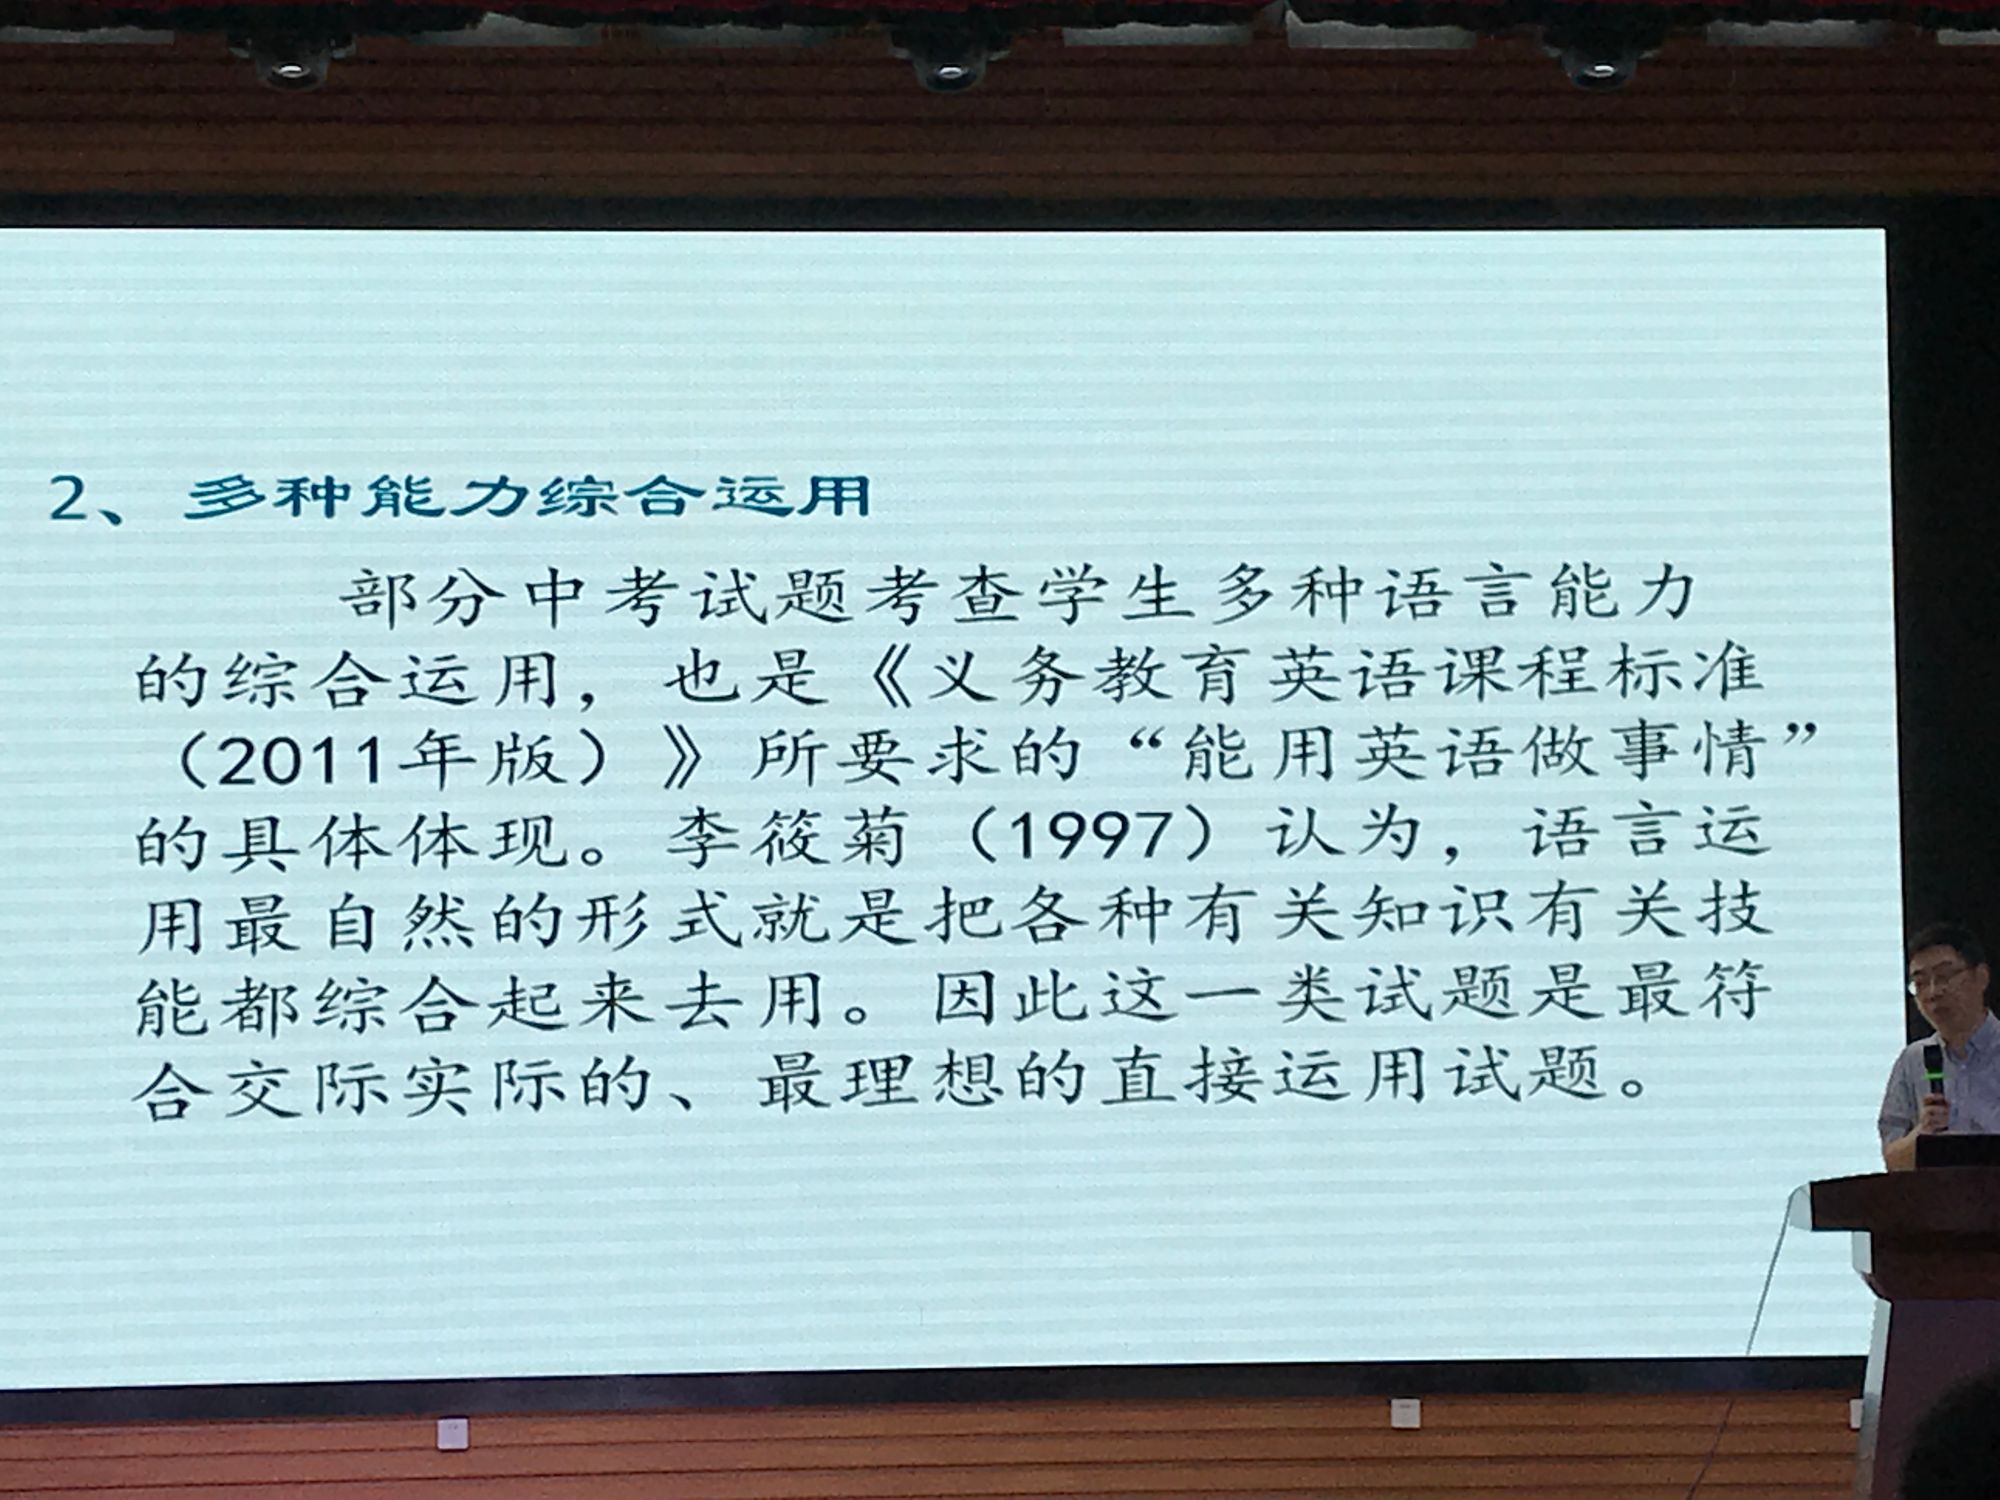 2、多种能力综合运用
部分中考试题考查学生多种语言能力
的综合运用，也是《义务教育英语课程标准
（2011年版）》所要求的“能用英语做事情”
的具体体现。李筱菊（1997）认为，语言运
用最自然的形式就是把各种有关知识有关技
能都综合起来去用。因此这一类试题是最符
合交际实际的、最理想的直接运用试题。